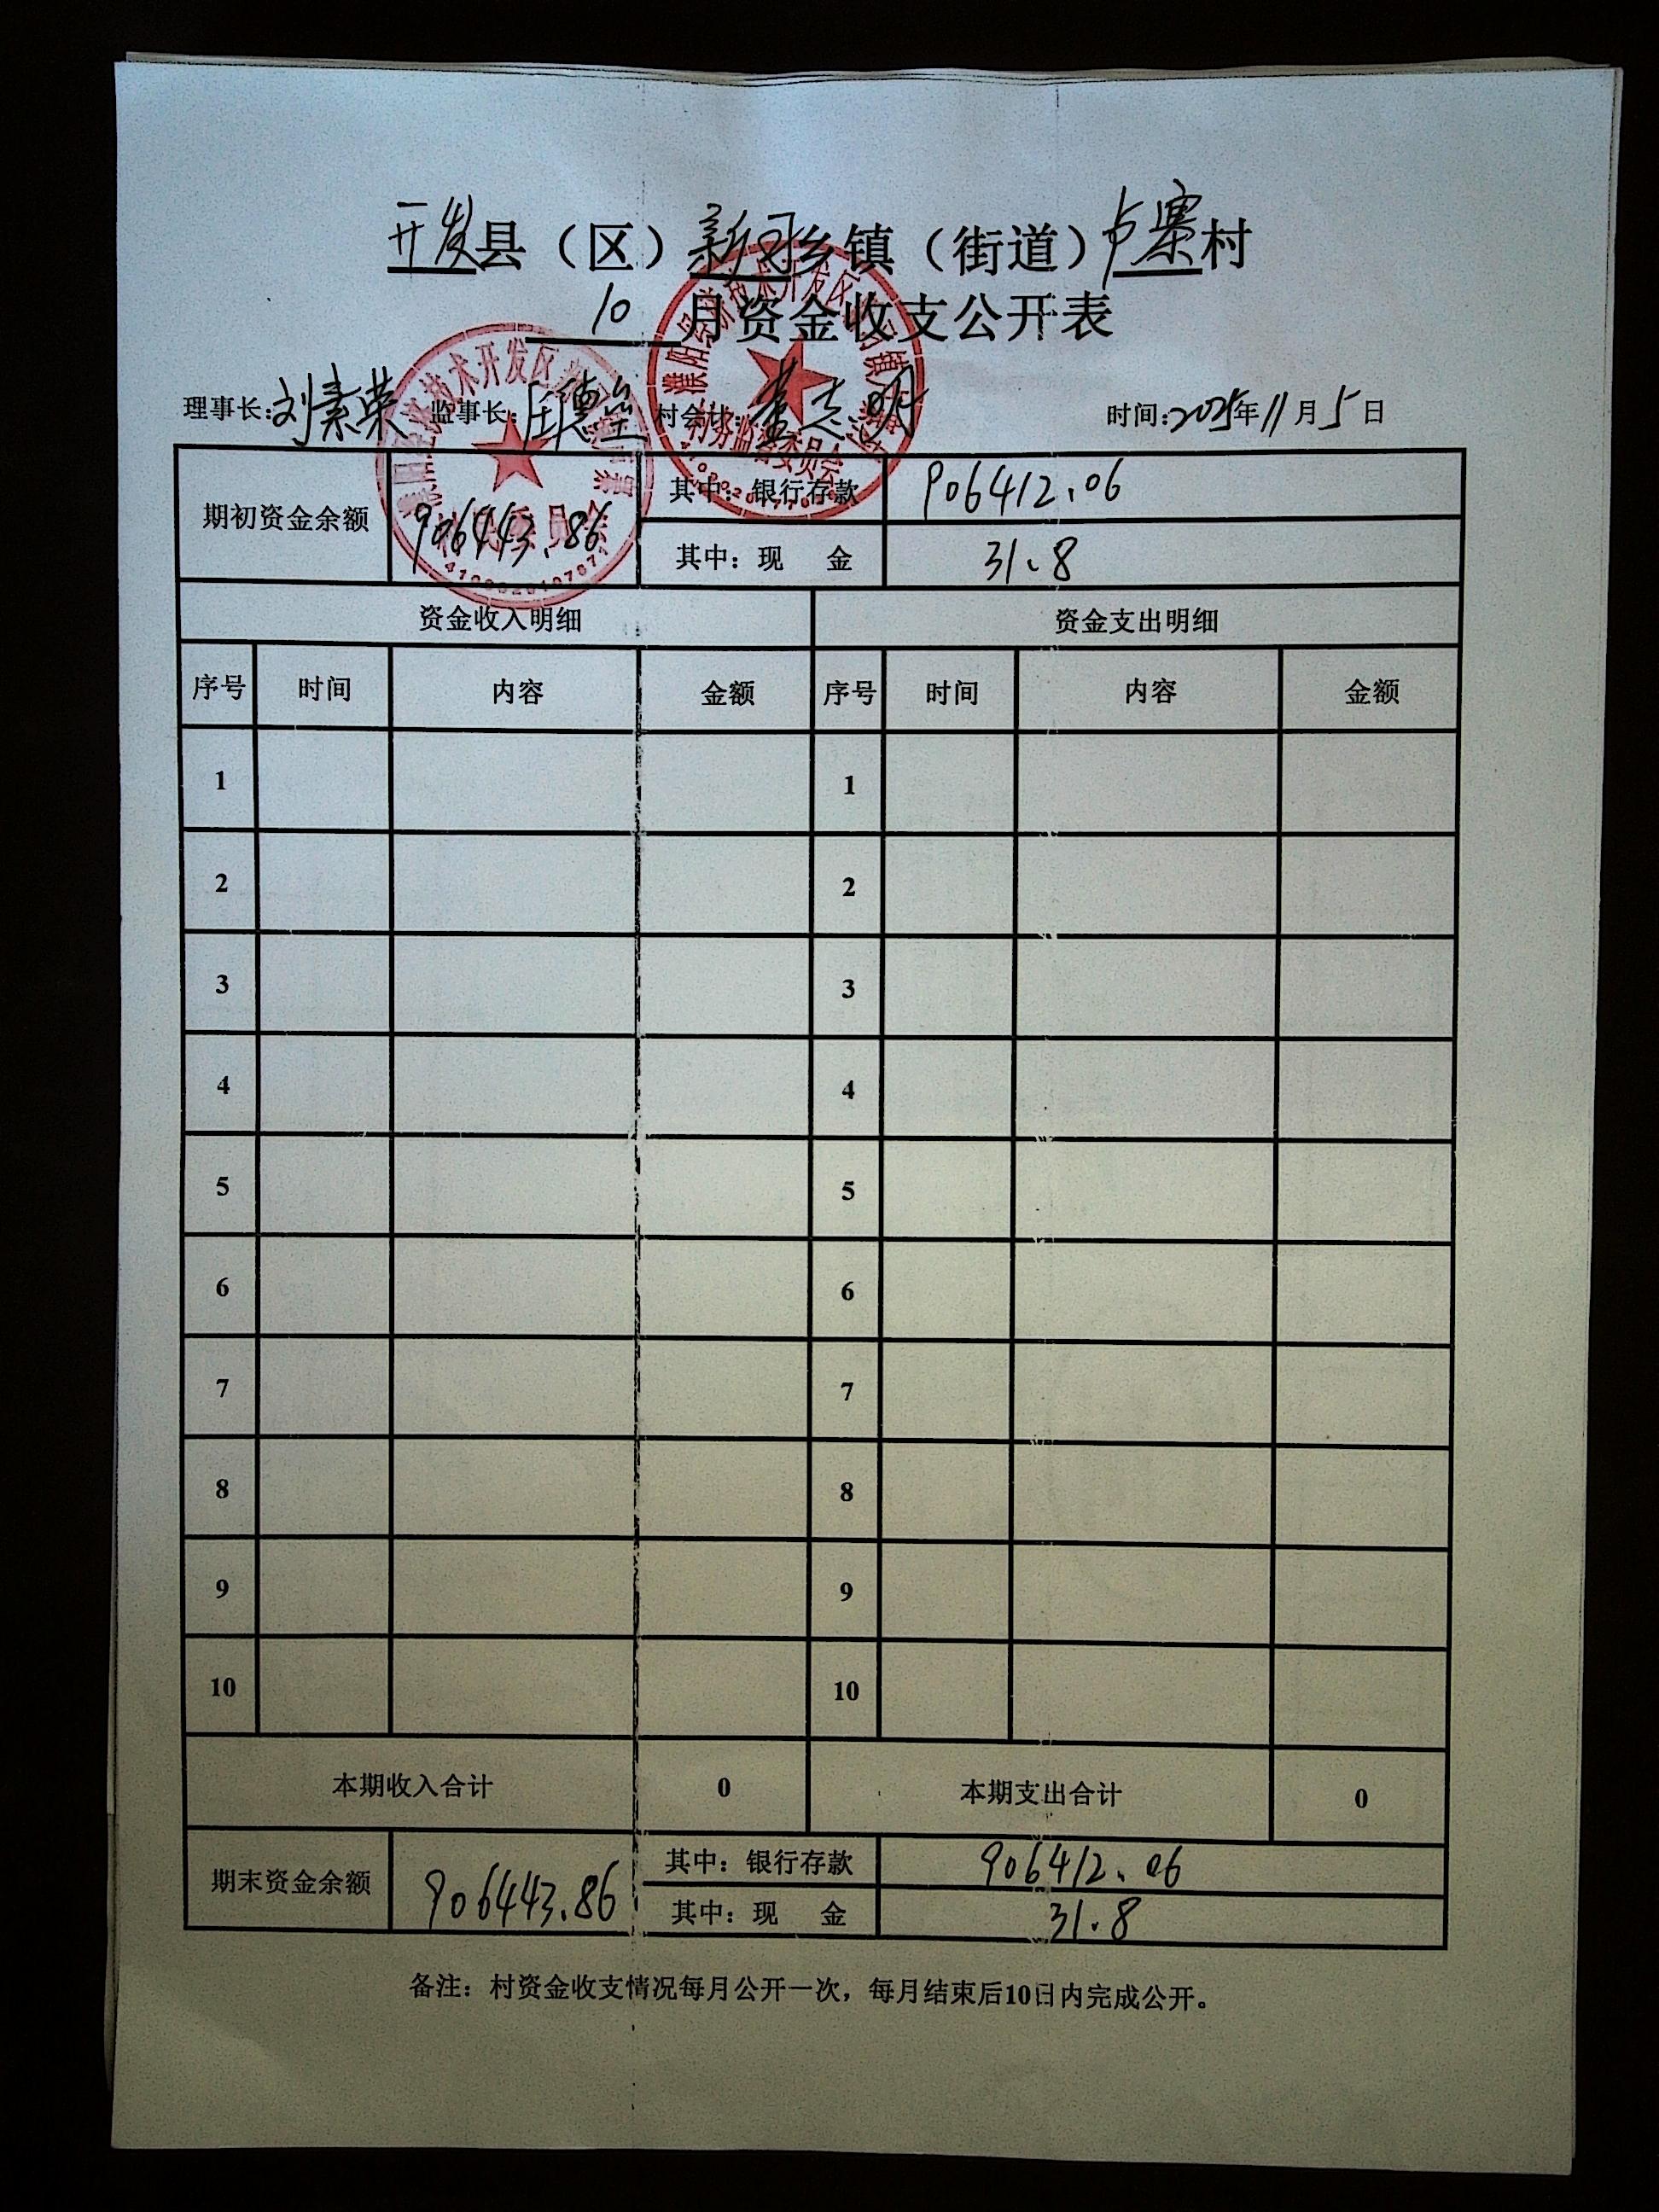 开发县（区）新习乡镇（街道）卢寨村
10月资金收支公开表
理事长：刘素荣 监事长： 村会计：董志明 时间：2025年11月5日
期初资金余额 906443.86 其中：银行存款 906412.06
其中：现 金 31.8
资金收入明细 资金支出明细
序号 时间 内容 金额 序号 时间 内容 金额
1 1
2 2
3 3
4 4
5 5
6 6
7 7
8 8
9 9
10 10
本期收入合计 0 本期支出合计 0
期末资金余额 906443.86 其中：银行存款 906412.06
其中：现 金 31.8
备注：村资金收支情况每月公开一次，每月结束后10日内完成公开。